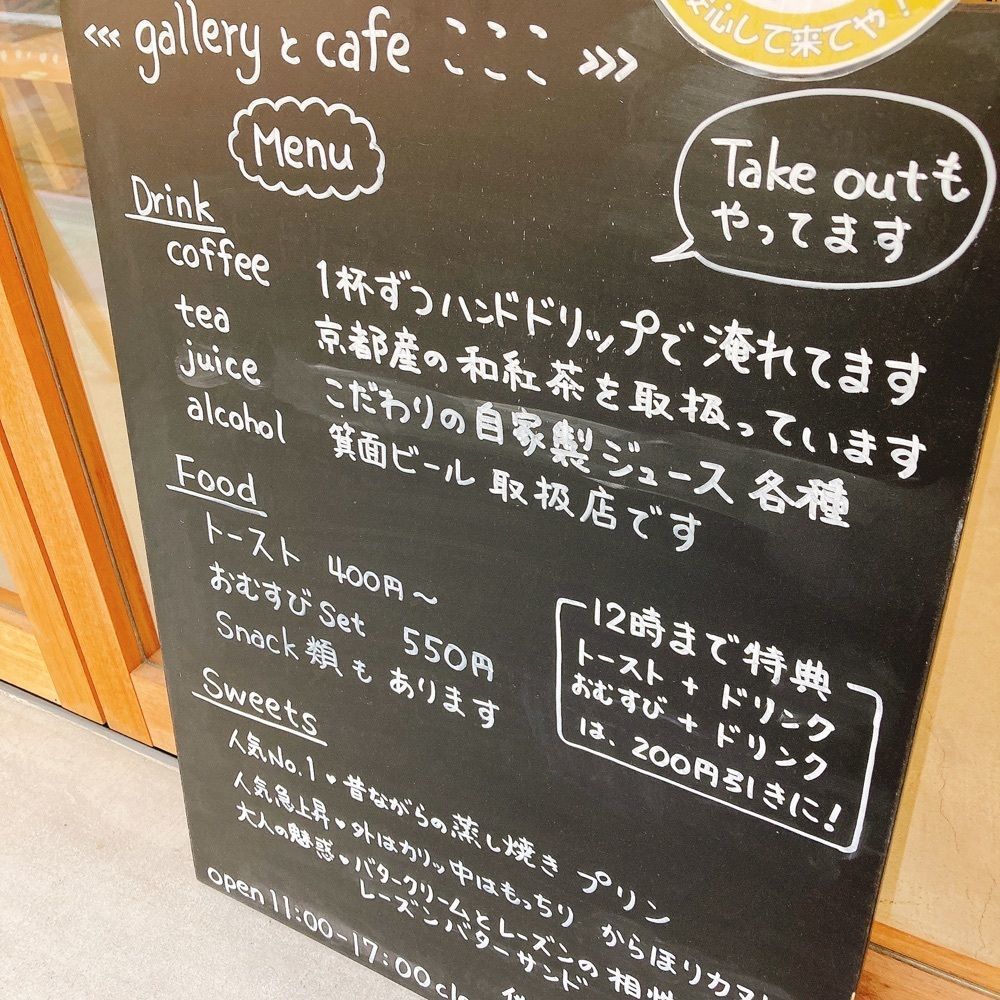 安心して来てや!
‹‹‹ gallery と cafe こここ ›››
Menu
Take outも
やってます
Drink
coffee 1杯ずつハンドドリップで淹れてます
tea 京都産の和紅茶を取扱っています
juice こだわりの自家製ジュース 各種
alcohol 箕面ビール 取扱店です
Food
トースト 400円〜
おむすびSet 550円
Snack類もあります
12時まで特典
トースト + ドリンク
おむすび + ドリンク
は、200円引きに!
Sweets
人気No.1 ♥ 昔ながらの蒸し焼き プリン
人気急上昇 ♥ 外はカリッ中はもっちり からほりカヌレ
大人の魅惑 ♥ バタークリームとレーズンの相性
レーズンバターサンド
open 11:00-17:00 clo